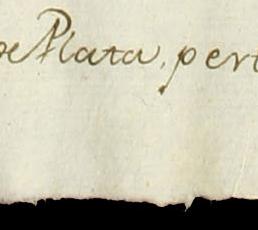 de Plata, pert